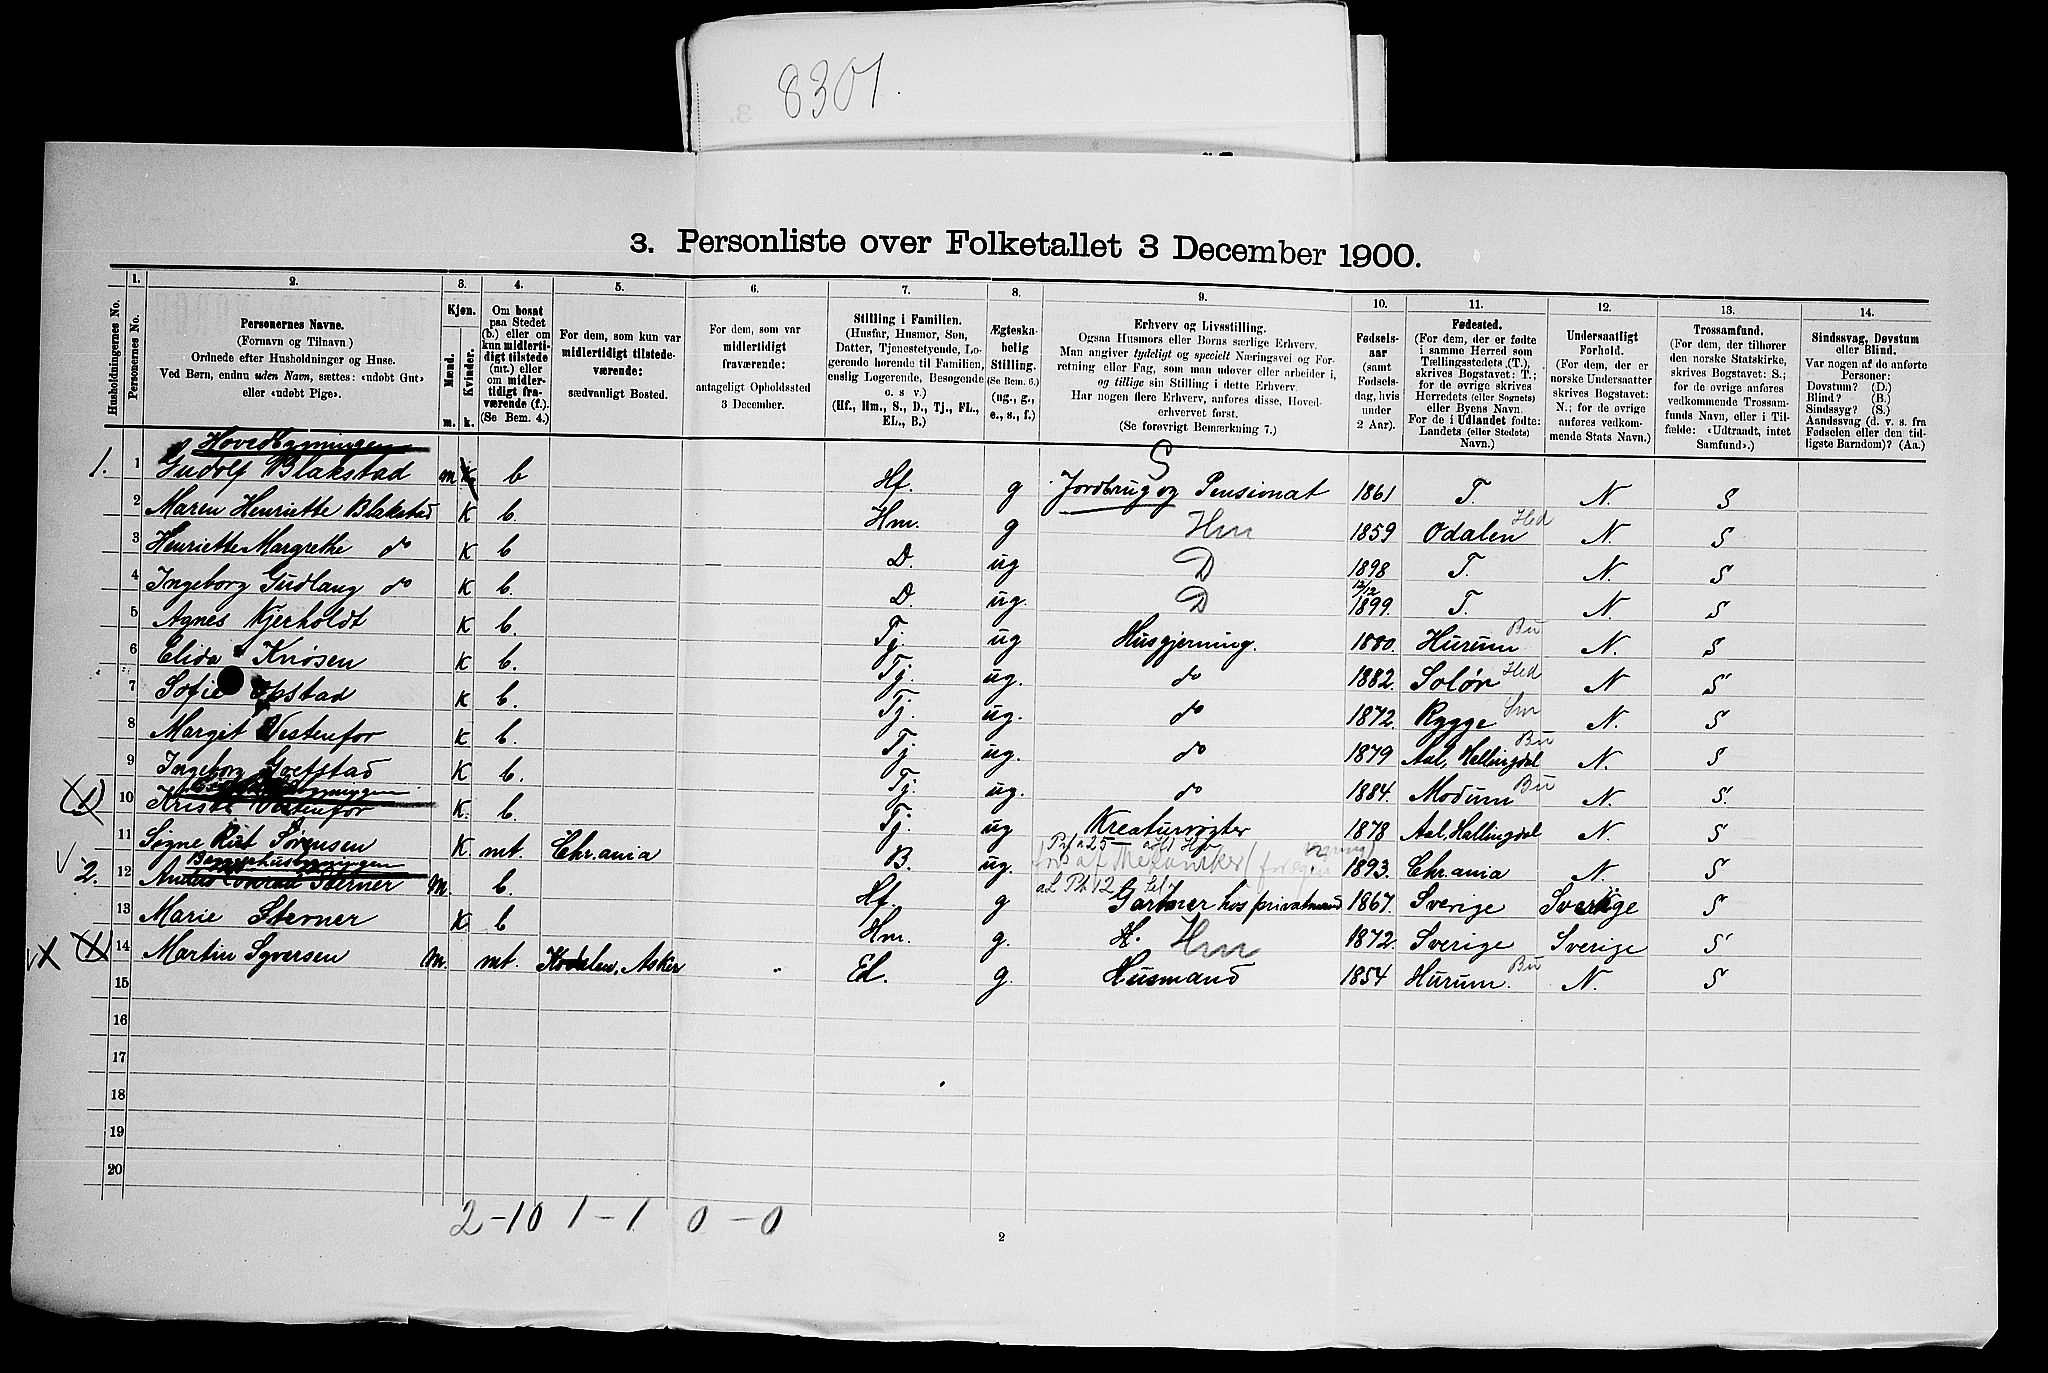 8301.
3. Personliste over Folketallet 3 December 1900.
Husholdningernes No.
1.
Personernes No.
2.
Personernes Navne.
(Fornavn og Tilnavn)
Ordnede efter Husholdninger og Huse.
Ved Børn, endnu uden Navn, sættes: «udøbt Gut»
eller «udøbt Pige».
3.
Kjøn.
Mænd.
Kvinder.
m.
k.
4.
Om bosat
paa Stedet
(b.) eller om
kun midlerti-
digt tilstede
(mt.) eller
om midler-
tidigt fra-
værende (f.).
(Se Bem. 4.)
5.
For dem, som kun var
midlertidigt tilstede-
værende:
sædvanligt Bosted.
6.
For dem, som var
midlertidigt
fraværende:
antageligt Opholdssted
3 December.
7.
Stilling i Familien.
(Husfar, Husmor, Søn,
Datter, Tjenestetyende, Lo-
gerende hørende til Familien,
enslig Logerende, Besøgende
o. s v.)
(Hf., Hm., S., D., Tj., FL.,
EL., B.)
8.
Ægteska-
belig
Stilling.
(Se Bem. 6.)
(ug., g.,
e., s., f.)
9.
Erhverv og Livsstilling.
Ogsaa Husmors eller Børns særlige Erhverv.
Man angiver tydeligt og specielt Næringsvei og For-
retning eller Fag, som man udøver eller arbeider i,
og tillige sin Stilling i dette Erhverv.
Har nogen flere Erhverv, anføres disse, Hoved-
erhvervet først.
(Se forøvrigt Bemærkning 7.)
10.
Fødsels-
aar
(samt
Fødsels-
dag, hvis
under
2 Aar).
11.
Fødested.
(For dem, der er fødte
i samme Herred som
Tællingsstedets (T.),
skrives Bogstavet: T.;
for de øvrige skrives
Herredets (eller Sognets)
eller Byens Navn.
For de i Udlandet fødte:
Landets (eller Stedets)
Navn.)
12.
Undersaatligt
Forhold.
(For dem, der er
norske Undersaatter
skrives Bogstavet:
N.; for de øvrige
anføres vedkom-
mende Stats Navn.)
13.
Trossamfund.
(For dem, der tilhører
den norske Statskirke,
skrives Bogstavet: S.;
for de øvrige anføres
vedkommende Trossam-
funds Navn, eller i Til-
fælde: «Udtraadt, intet
Samfund».)
14.
Sindssvag, Døvstum
eller Blind.
Var nogen af de anførte
Personer:
Døvstum? (D.)
Blind? (B.)
Sindssyg? (S.)
Aandssvag (d. v. s. fra
Fødselen eller den tid-
ligste Barndom)? (Aa.)
Hovedbygningen
1. 1 Gudolf Blakstad m k b Hf. g Jordbrug og Pensionat S 1861 T. N. S
2 Maren Henriette Blakstad K b. Hm. g Hm 1859 Odalen Hed N. S
3 Henriette Margrethe do K b D. ug D 1898 T. N. S
4 Ingeborg Gudlaug do K b. D. ug. D 12/12 1899. T. N. S
5 Agnes Kjerholdt K b. Tj. ug Husgjerning. 1880. Hurum Bu N. S
6 Elida Knøsen K b. Tj. ug. do 1882. Solør Hed N S
7 Sofie Opstad K b. Tj. ug. do 1872. Rygge Sm N. S
8 Margit Vestenfor K b. Tj ug. do 1879 Aal, Hallingdal Bu N. S
9 Ingeborg Goetstad K b. Tj. ug. do 1884. Modum Bu N. S.
10 Vestenfor K. b. Tj. ug Kreaturrøgter 1878 Aal, Hallingdal N. S
11 Signe Rist Sørensen K mt. Chr.ania B. ug. 1893. Chr.ania N. S
Bagerhusbygningen
2. 12 Anders Conrad Sterner M. b. Hf. g Gartner hos privatmand 1867. Sverige Sverige S
13 Marie Sterner K b Hm. g. H. Hm 1872. Sverige Sverige S
14 Martin Syversen M. mt. Kodalen, Asker El. g. Husmand 1854 Hurum. Bu N. S
15
16
17
18
19
20
2 - 10 1 - 1 0 - 0
2